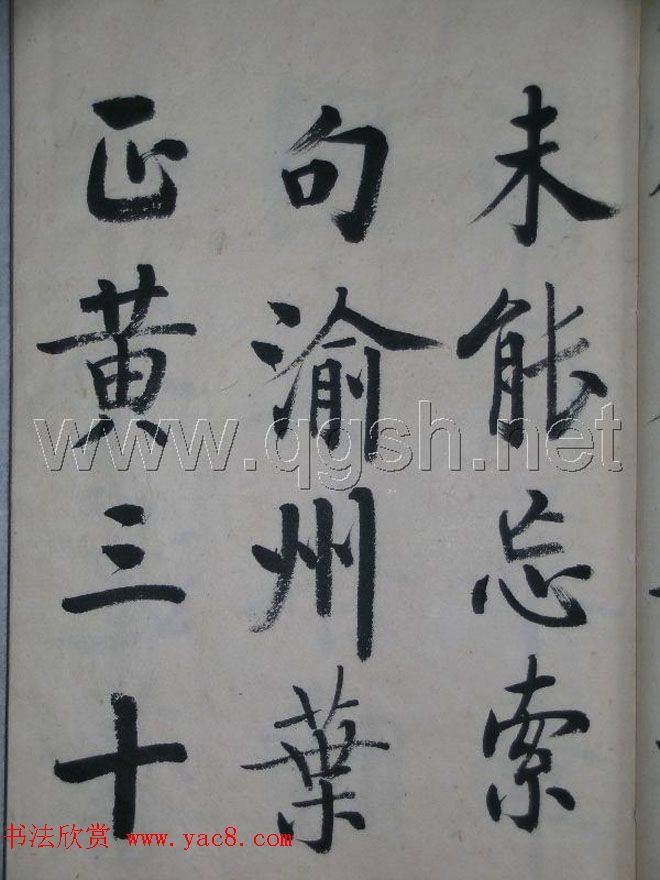 未能忘索
句渝州葉
正黄三十
www.qgsh.net
书法欣赏 www.yac8.com